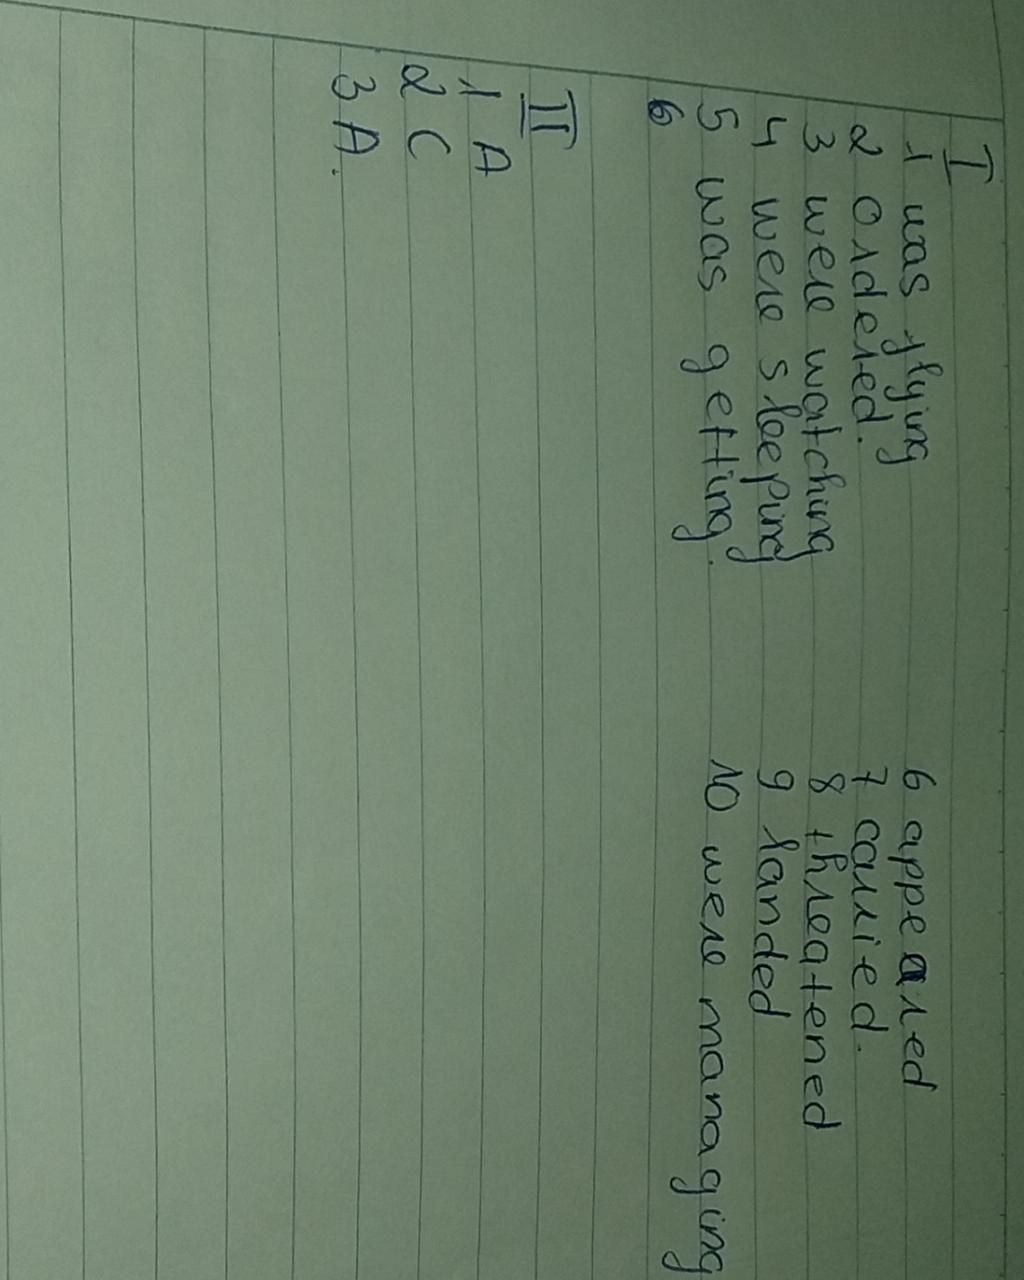 I
1 was flying
2 ordered.
3 were watching
4 were sleeping
5 was getting.
6
6 appeared
7 carried.
8 threatened
9 landed
10 were managing
II
1 A
2 C
3 A.